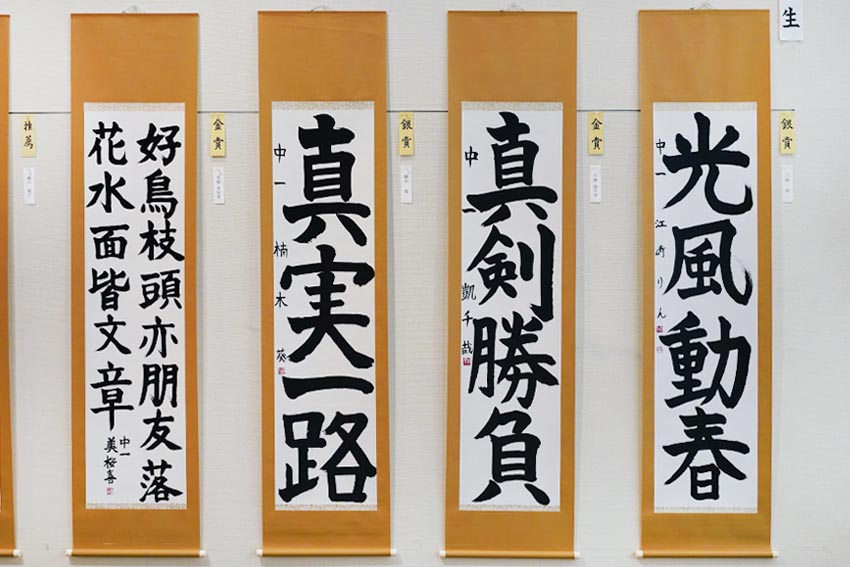 生
銀賞
光風動春
中一
りん
金賞
真剣勝負
中一 凱千哉
銀賞
真実一路
中一 楠木 葵
金賞
好鳥枝頭亦朋友落
花水面皆文章
中一 美桜喜
推薦